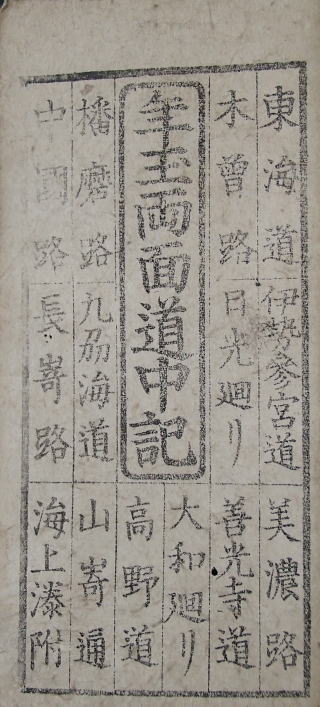 東海道 伊勢参宮道 美濃路
木曽路 日光廻リ 善光寺道
年玉両面道中記
大和廻リ
高野道
播磨路 九刕海道 山嵜通
中國路 長嵜路 海上湊附